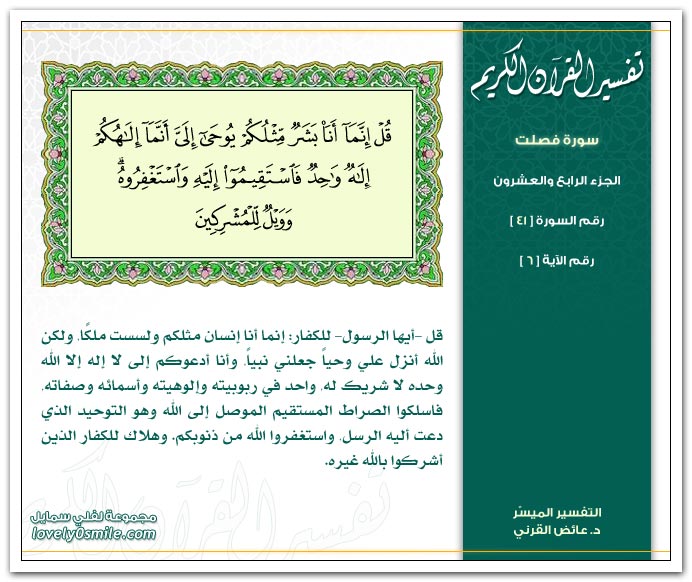 تفسير القرآن الكريم
سورة فصلت
الجزء الرابع والعشرون
رقم السورة [ ٤١ ]
رقم الآية [ ٦ ]
قُلْ إِنَّمَآ أَنَا۠ بَشَرٌ مِّثْلُكُمْ يُوحَىٰٓ إِلَىَّ أَنَّمَآ إِلَـٰهُكُمْ
إِلَـٰهٌ وَٰحِدٌ فَٱسْتَقِيمُوٓا۟ إِلَيْهِ وَٱسْتَغْفِرُوهُ ۗ
وَوَيْلٌ لِّلْمُشْرِكِينَ
قل -أيها الرسول- للكفار: إنما أنا إنسان مثلكم ولسست ملكًا، ولكن
الله أنزل علي وحياً جعلني نبياً، وأنا أدعوكم إلى لا إله إلا الله
وحده لا شريك له، واحد في ربوبيته وإلوهيته وأسمائه وصفاته،
فاسلكوا الصراط المستقيم الموصل إلى الله وهو التوحيد الذي
دعت أليه الرسل، واستغفروا الله من ذنوبكم. وهلاك للكفار الذين
أشركوا بالله غيره.
التفسير الميسّر
د. عائض القرني
مجموعة لفلي سمايل
lovely0smile.com
تفسير القرآن الكريم